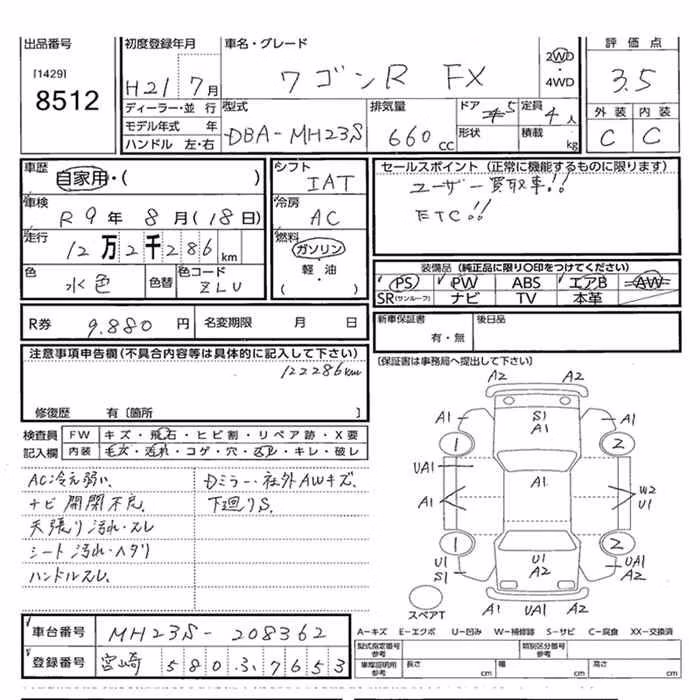 出品番号 初度登録年月 車名・グレード 評価点
[1429] H21年7月 ワゴンR FX 2WD・4WD 3.5
8512 ディーラー・並行 型式 排気量 ドア 5 定員 4人 外装 内装
モデル年式 年 DBA-MH23S 660cc 形状 積載 kg C C
ハンドル 左・右
車歴 自家用・( ) シフト IAT セールスポイント (正常に機能するものに限ります)
車検 R9年8月(18日) 冷房 AC ユーザー買取車!!
ETC!!
走行 12万2千286km 燃料 ガソリン 軽・油 ( )
色 水色 色替 色コード ZLU
装備品 (純正品に限り○印をつけてください)
PS PW ABS エアB AW
SR(サンルーフ) ナビ TV 本革
R券 9.880円 名変期限 月 日 新車保証書 有・無 後日品
注意事項申告欄(不具合内容等は具体的に記入して下さい) [保証書は事務局へ提出して下さい]
122286km
修復歴 有〔箇所 〕
検査員 FW キズ・飛石・ヒビ割・リペア跡・X要
記入欄 内装 毛欠・汚れ・コゲ・穴・スレ・キレ・破レ
AC冷え弱い. Dミラー・社外AWキズ.
ナビ開閉不良 下廻りS.
天張り汚れ・スレ
シート汚れ・ヘタリ
ハンドルスレ.
A2 A2
A1 S1 A1 A1
1 2
UA1 A1
A1 W2 U1
1 2
U1 S1 U1 A2 UA1 A2
A1 UA1 A2
スペアT
車台番号 MH23S-208362
A-キズ E-エクボ U-凹み W-補修跡 S-サビ C-腐食 XX-交換済
登録番号 宮崎 580ふ7653
型式指定番号 参考 類別区分番号 参考
車庫証明用 参考 長さ cm 幅 cm 高さ cm